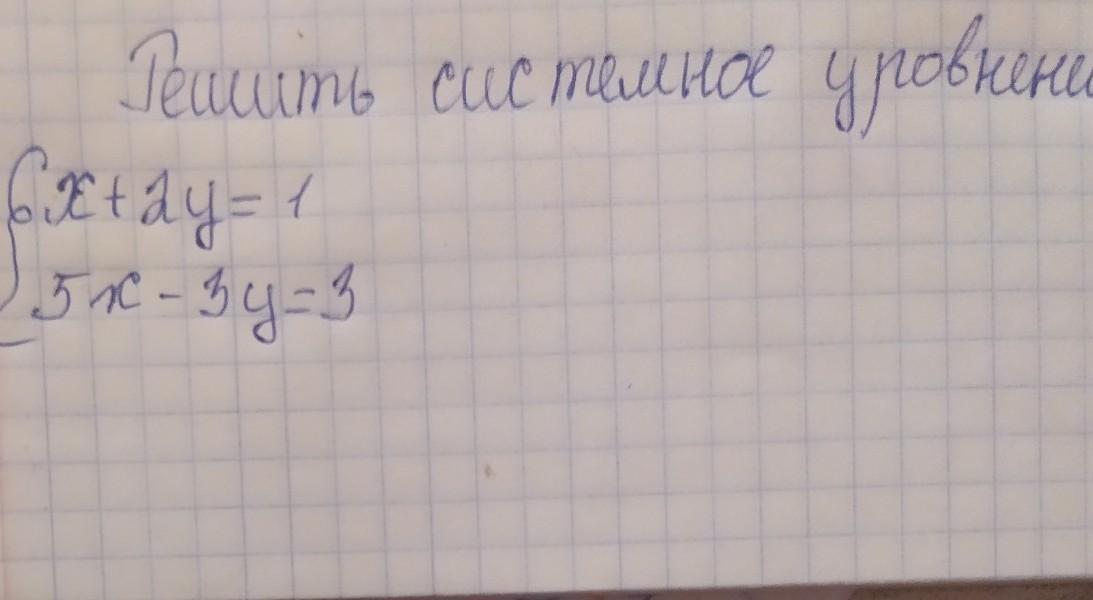 Решить системное уровнени
{6x+2y=1
5x-3y=3